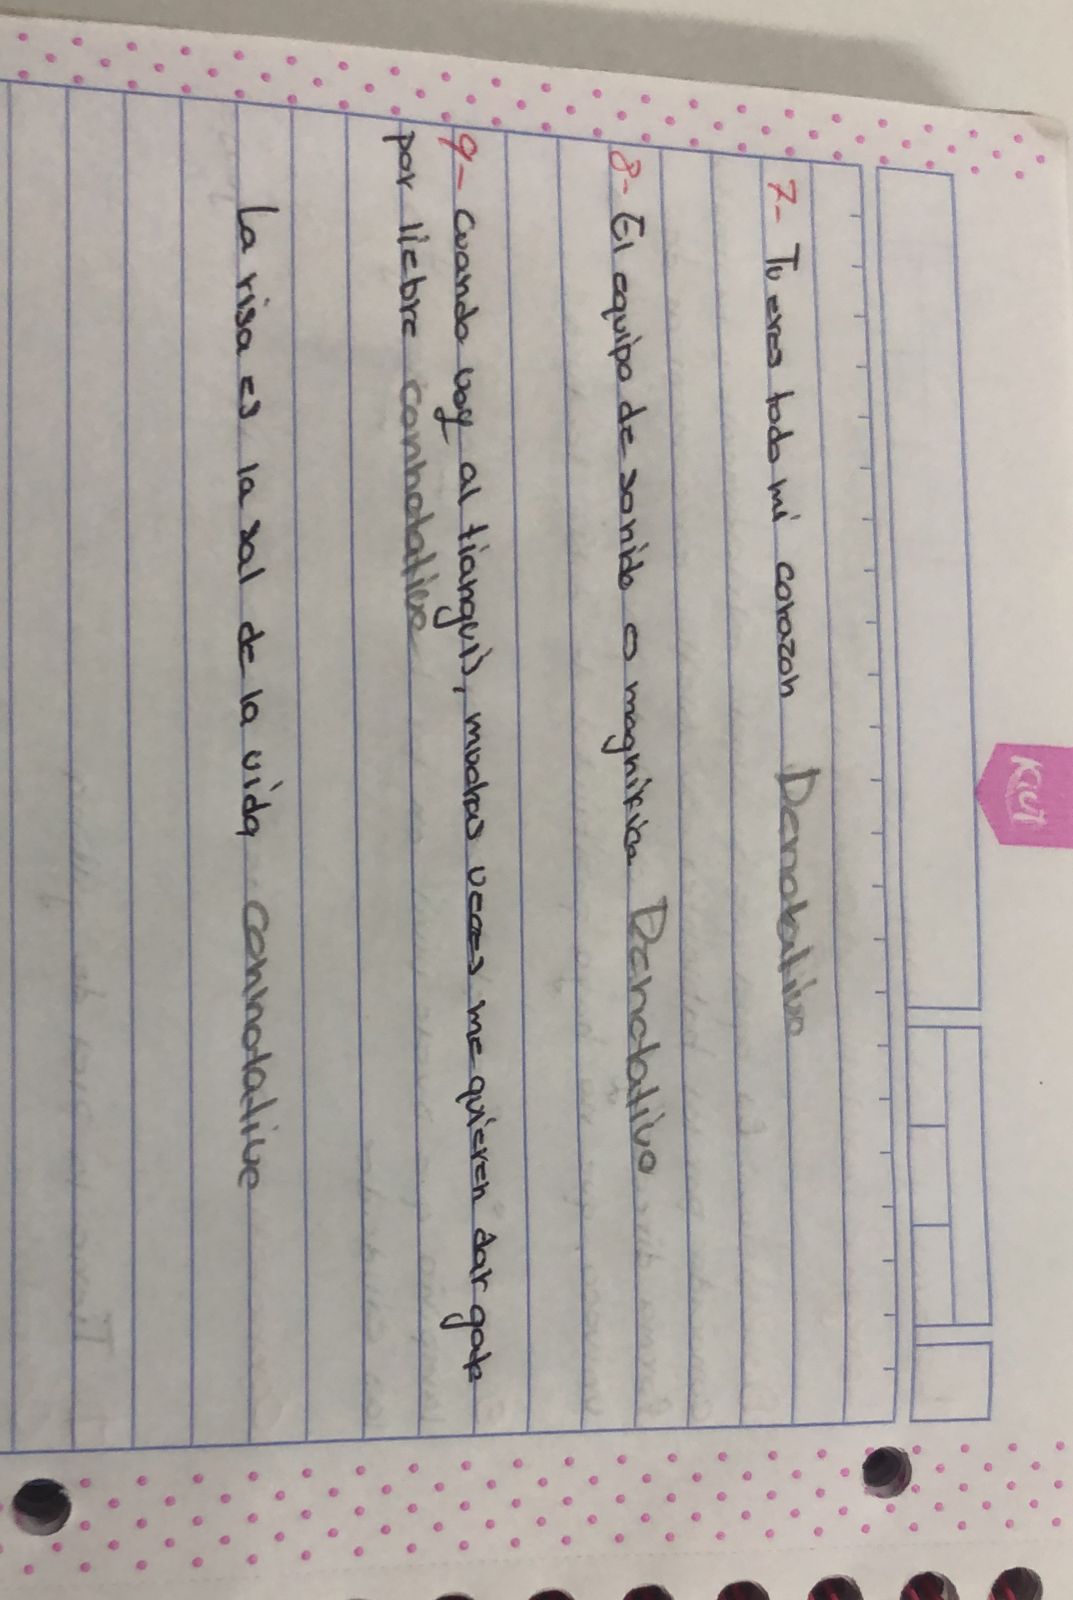 Kiut
7- Tu eres todo mi corazon Denotativo
8- El equipo de sonido o magnifico Denotativo
9- Cuando voy al tianguis, muchas veces me quieren dar gato
por liebre connotativo
La risa es la sal de la vida connotativo